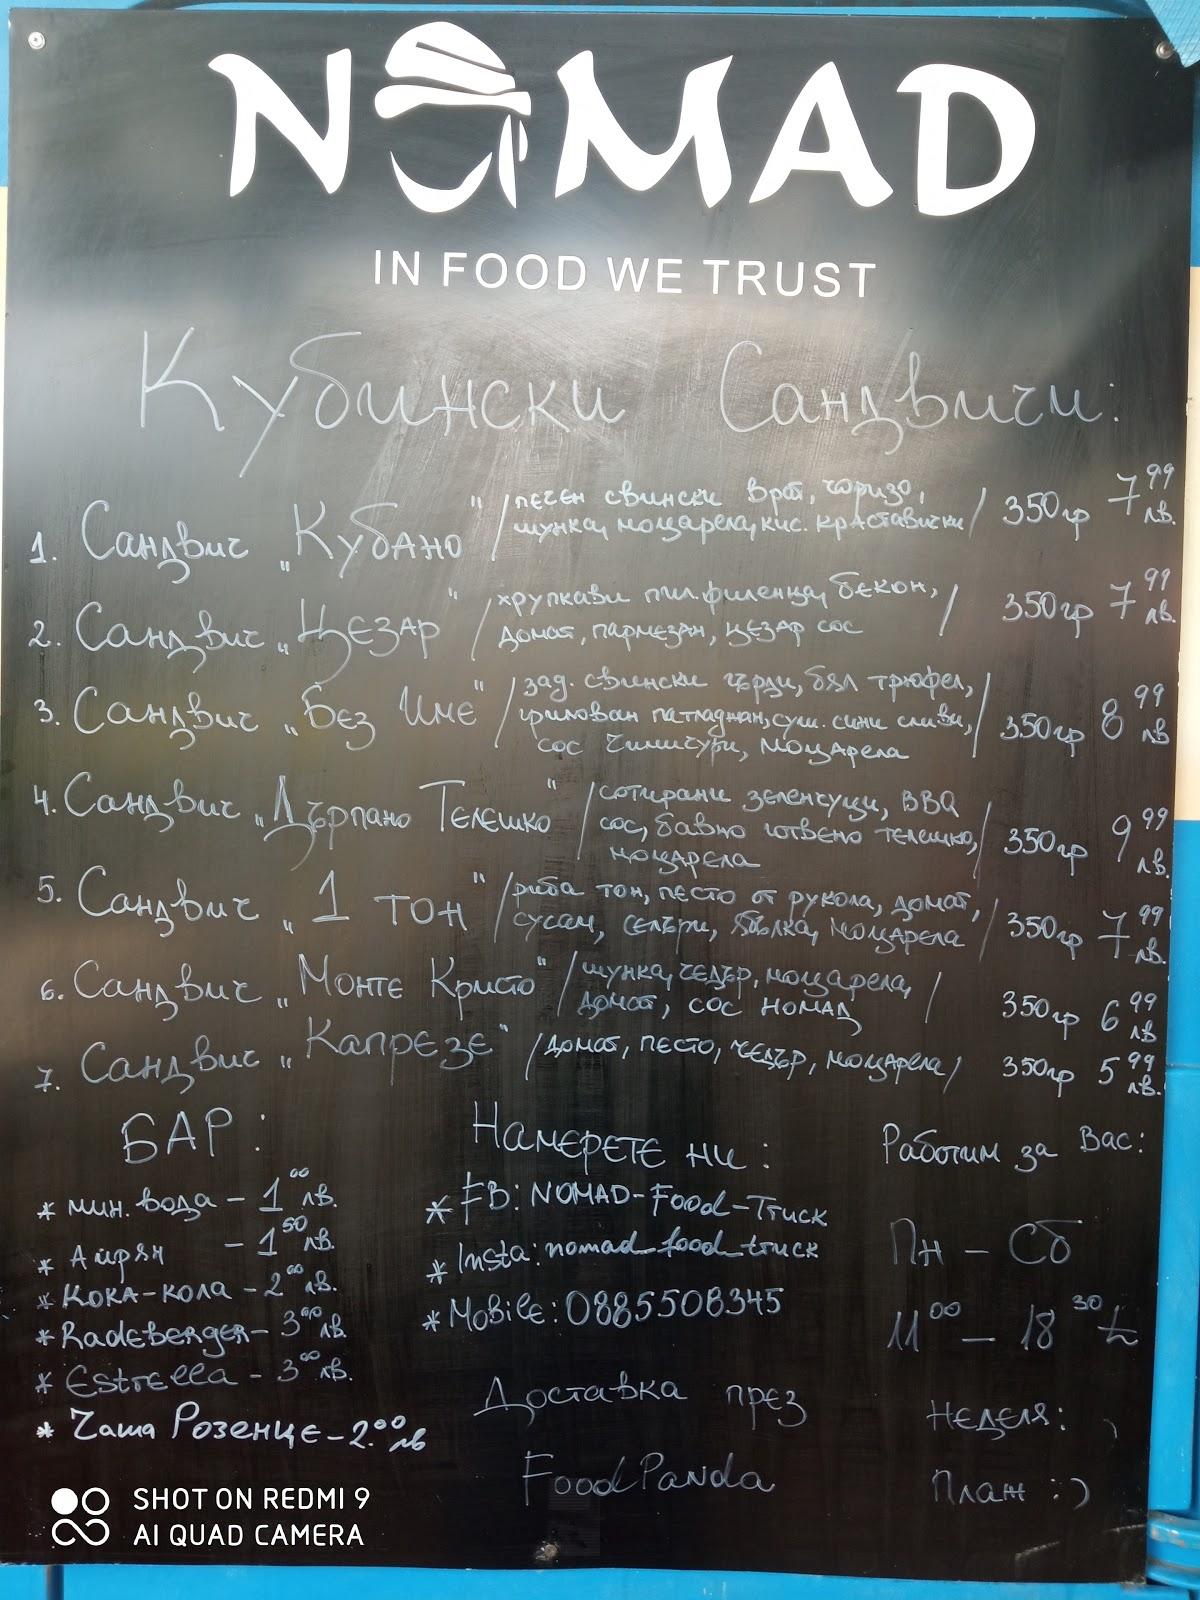 NOMAD
IN FOOD WE TRUST
Кубински Сандвичи:
1. Сандвич „Кубано" /печен свински врат, чоризо,
шунка, моцарела, кис. краставички/ 350гр 7⁹⁹ лв.
2. Сандвич „Цезар" /хрупкави пил. филенца, бекон,
домат, пармезан, цезар сос/ 350гр 7⁹⁹ лв.
3. Сандвич „Без Име" /зад. свински гърди, бял трюфел,
грилован патладжан, суш. сини сливи,
сос Чимичури, моцарела/ 350гр 8⁹⁹ лв
4. Сандвич „Дърпано Телешко" /сотирани зеленчуци, BBQ
сос, бавно готвено телешко,
моцарела/ 350гр 9⁹⁹ лв.
5. Сандвич „1 тон" /риба тон, песто от рукола, домат,
сусам, селъри, ябълка, моцарела/ 350гр 7⁹⁹ лв.
6. Сандвич „Монте Кристо" /шунка, чедър, моцарела,
домат, сос номад/ 350гр 6⁹⁹ лв
7. Сандвич „Капрезе" /домат, песто, чедър, моцарела/ 350гр 5⁹⁹ лв.
БАР:
* мин. вода – 1⁰⁰ лв.
* Айрян – 1⁵⁰ лв.
* Кока-кола – 2⁰⁰ лв.
* Radeberger – 3⁰⁰ лв.
* Estrella – 3⁰⁰ лв.
* Чаша Розенце – 2.⁰⁰ лв
Намерете ни:
* FB: NOMAD-Food-Truck
* Insta: nomad_food_truck
* Mobile: 0885508345
Доставка през
FoodPanda
Работим за Вас:
Пн – Сб
11⁰⁰ – 18³⁰ ч.
Неделя:
Плаж :)
SHOT ON REDMI 9
AI QUAD CAMERA